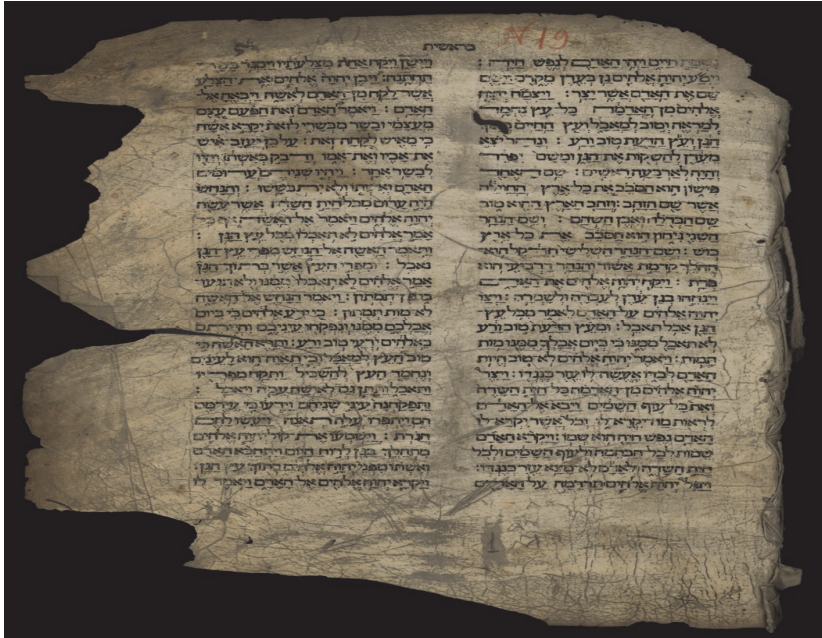 בראשית
N 19
נשמת חיים ויהי האדם לנפש חיה :
ויטע יהוה אלהים גן בעדן מקדם וישם
שם את האדם אשר יצר : ויצמח יהוה
אלהים מן האדמה כל עץ נחמד
למראה וטוב למאכל ועץ החיים
הגן ועץ הדעת טוב ורע : ונהר יצא
מעדן להשקות את הגן ומשם יפרד
והיה לארבעת ראשים : שם האחד
פישון הוא הסבב את כל ארץ החוילה
אשר שם הזהב : וזהב הארץ ההוא טוב
שם הבדלח ואבן השהם : ושם הנהר
השני גיחון הוא הסבב את כל ארץ
כוש : ושם הנהר השלישי חדקל הוא
ההלך קדמת אשור והנהר הרביעי הוא
פרת : ויקח יהוה אלהים את האדם
וינחהו בגן עדן לעבדה ולשמרה : ויצו
יהוה אלהים על האדם לאמר מכל עץ
הגן אכל תאכל : ומעץ הדעת טוב ורע
לא תאכל ממנו כי ביום אכלך ממנו מות
תמות : ויאמר יהוה אלהים לא טוב היות
האדם לבדו אעשה לו עזר כנגדו : ויצר
יהוה אלהים מן האדמה כל חית השדה
ואת כל עוף השמים ויבא אל האדם
לראות מה יקרא לו וכל אשר יקרא לו
האדם נפש חיה הוא שמו : ויקרא האדם
שמות לכל הבהמה ולעוף השמים ולכל
חית השדה ולאדם לא מצא עזר כנגדו :
ויפל יהוה אלהים תרדמה על האדם
ויישן ויקח אחת מצלעתיו ויסגר בשר
תחתנה : ויבן יהוה אלהים את הצלע
אשר לקח מן האדם לאשה ויבאה אל
האדם : ויאמר האדם זאת הפעם עצם
מעצמי ובשר מבשרי לזאת יקרא אשה
כי מאיש לקחה זאת : על כן יעזב איש
את אביו ואת אמו ודבק באשתו והיו
לבשר אחד : ויהיו שניהם ערומים
האדם ואשתו ולא יתבששו : והנחש
היה ערום מכל חית השדה אשר עשה
יהוה אלהים ויאמר אל האשה אף כי
אמר אלהים לא תאכלו מכל עץ הגן :
ותאמר האשה אל הנחש מפרי עץ הגן
נאכל : ומפרי העץ אשר בתוך הגן
אמר אלהים לא תאכלו ממנו ולא תגעו
בו פן תמתון : ויאמר הנחש אל האשה
לא מות תמתון : כי ידע אלהים כי ביום
אכלכם ממנו ונפקחו עיניכם והייתם
כאלהים ידעי טוב ורע : ותרא האשה כי
טוב העץ למאכל וכי תאוה הוא לעינים
ונחמד העץ להשכיל ותקח מפריו
ותאכל ותתן גם לאישה עמה ויאכל :
ותפקחנה עיני שניהם וידעו כי עירמם
הם ויתפרו עלה תאנה ויעשו להם
חגרת : וישמעו את קול יהוה אלהים
מתהלך בגן לרוח היום ויתחבא האדם
ואשתו מפני יהוה אלהים בתוך עץ הגן :
ויקרא יהוה אלהים אל האדם ויאמר לו
1